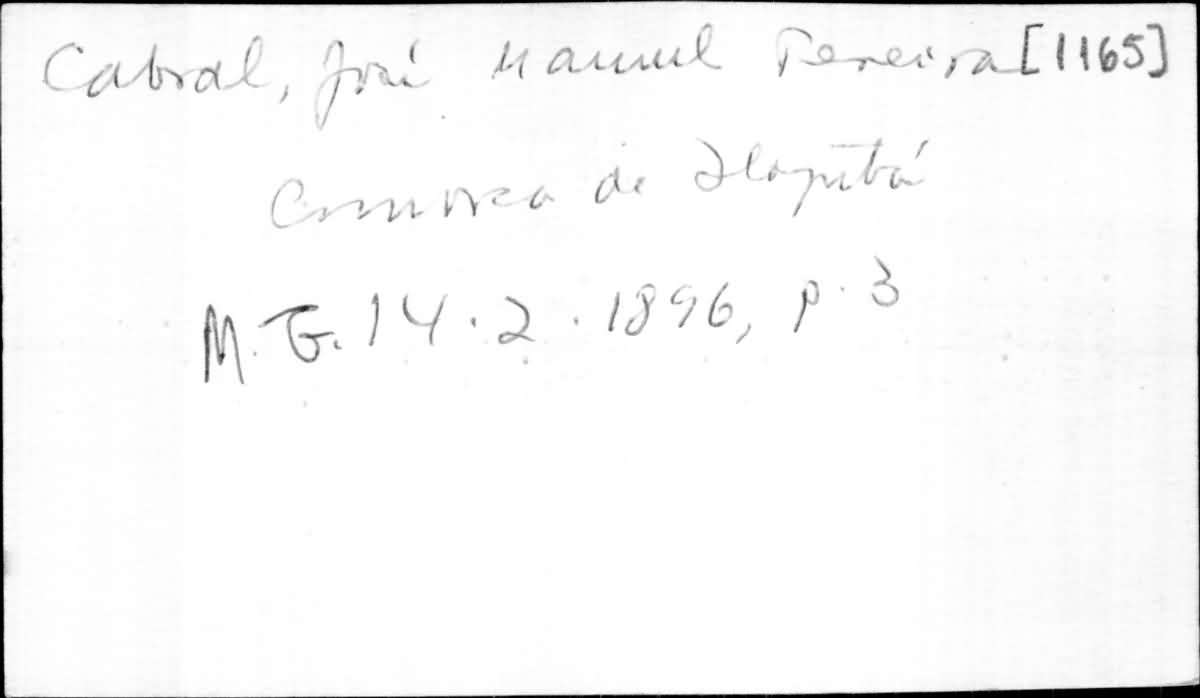 Cabral, José Manuel Pereira [1165]
Comarca de
M. G. 14.2.1896, p. 3